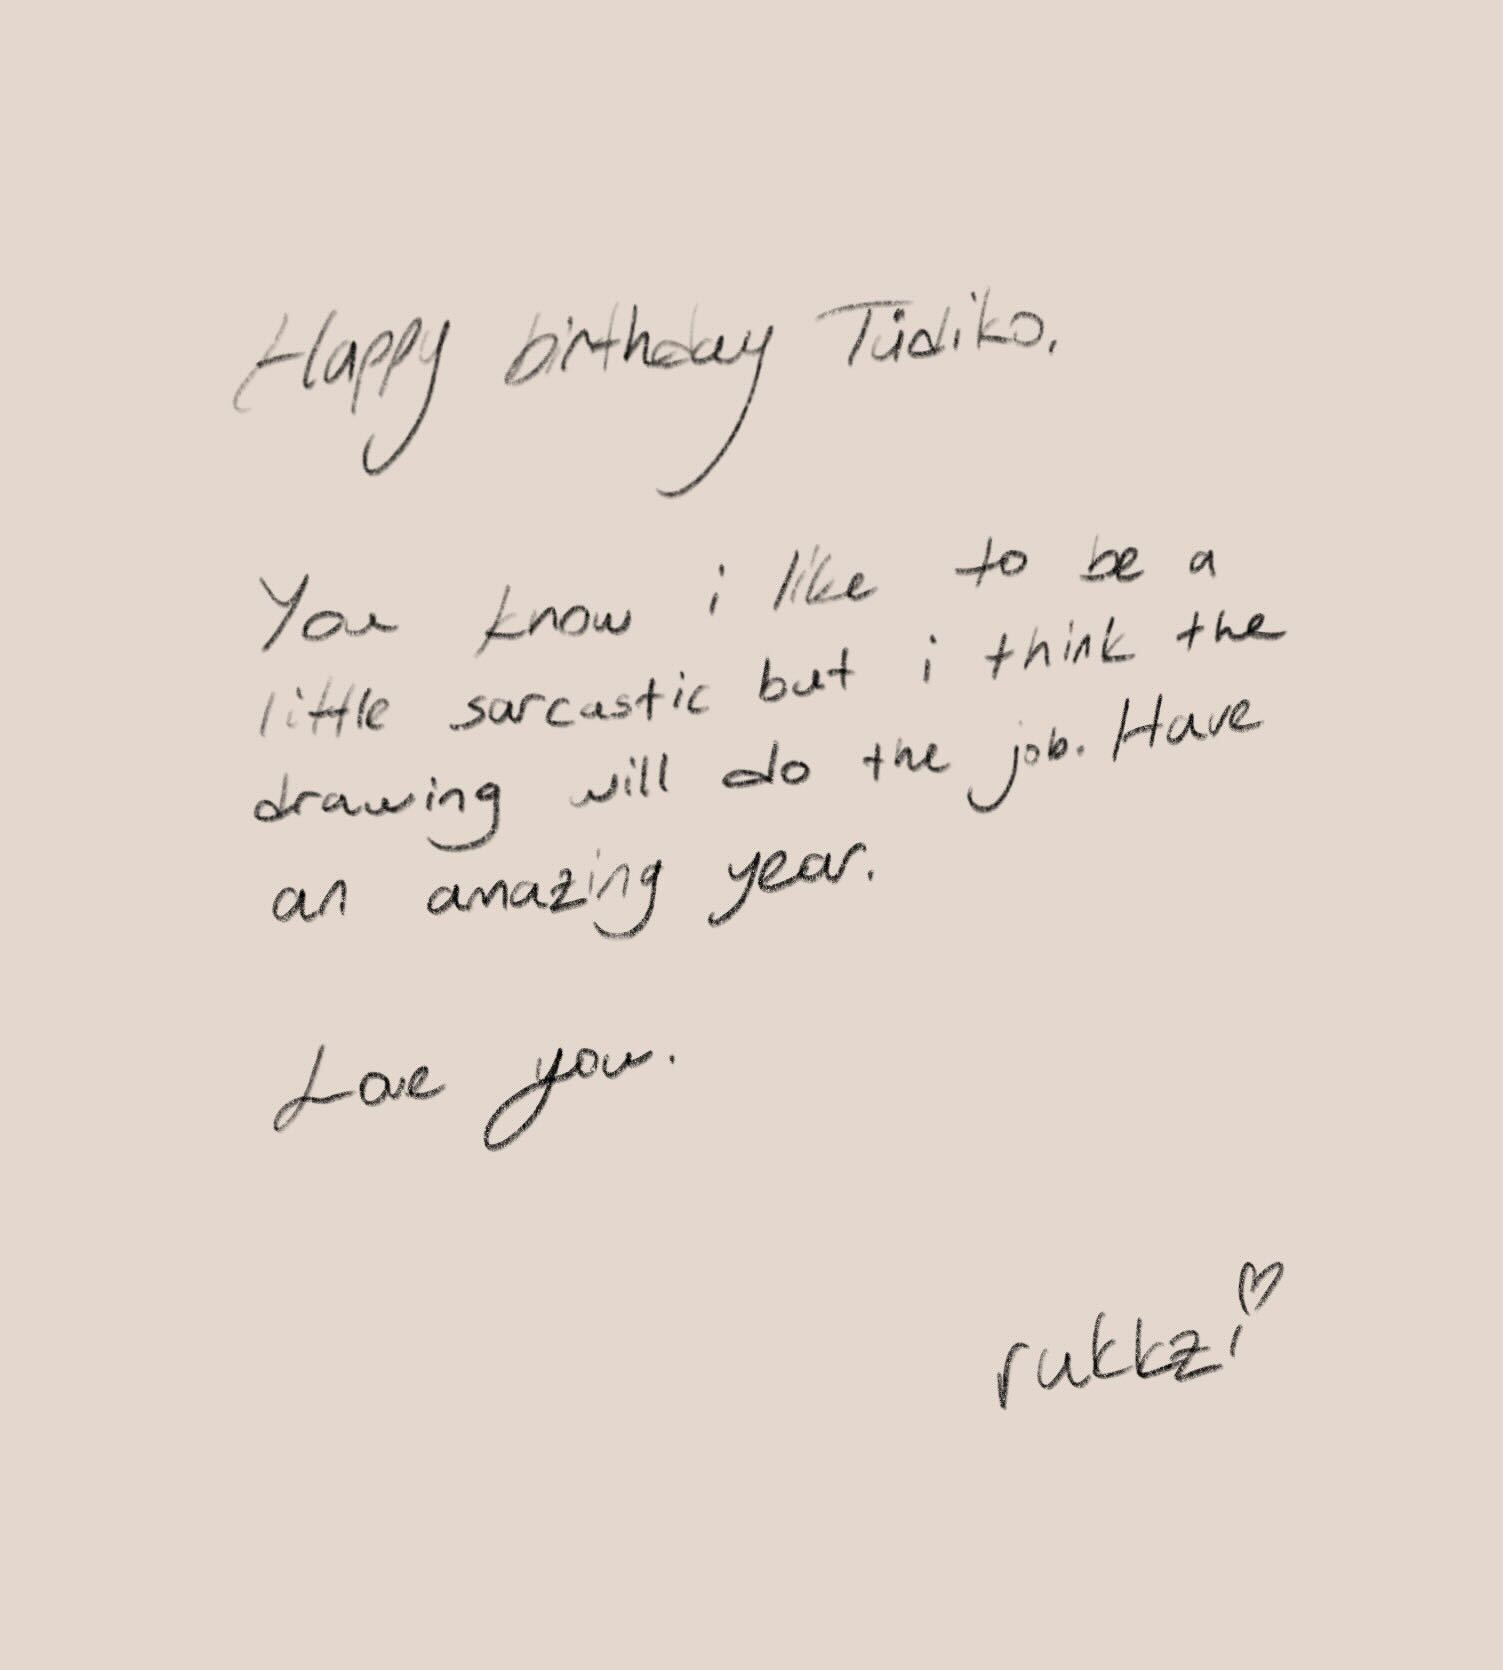 Happy birthday Tüdiko,
You know i like to be a
little sarcastic but i think the
drawing will do the job. Have
an amazing year.
Love you.
rukkzi